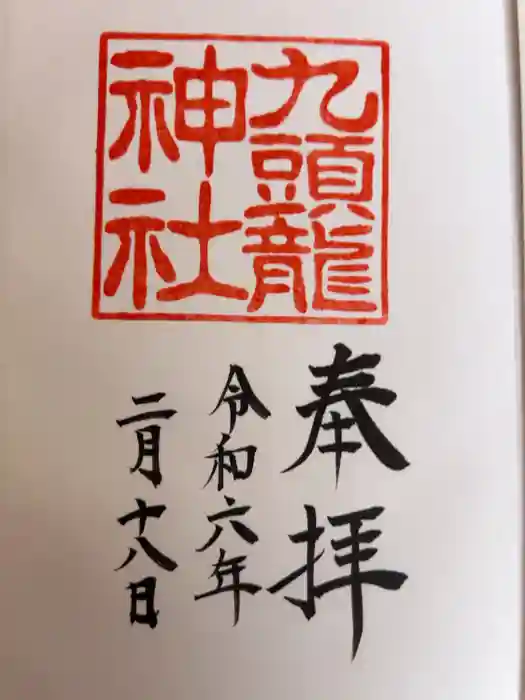 九頭龍
神社
奉拝
令和六年
二月十八日